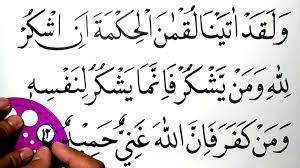 وَلَقَدْ اٰتَيْنَا لُقْمٰنَ الْحِكْمَةَ اَنِ اشْكُرْ
لِلّٰهِ وَمَنْ يَّشْكُرْ فَاِنَّمَا يَشْكُرُ لِنَفْسِهٖ
وَمَنْ كَفَرَ فَاِنَّ اللّٰهَ غَنِيٌّ حَمِيْدٌ ١٢